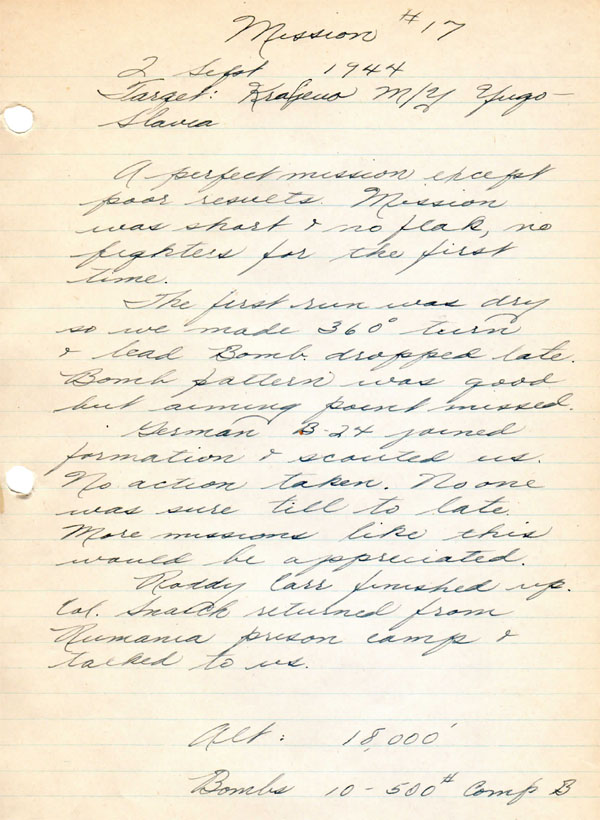 Mission #17
2 Sept 1944
Target: Krajeuo M/Y Yugo-
Slavia
A perfect mission except
poor results. Mission
was short & no flak, no
fighters for the first
time.
The first run was dry
so we made 360° turn
& lead Bomb. dropped late.
Bomb pattern was good
but aiming point missed.
German B-24 joined
formation & scouted us.
No action taken. No one
was sure till to late.
More missions like this
would be appreciated.
Roddy Carr finished up.
Col. Snaith returned from
Rumania prison camp &
talked to us.
Alt: 18,000'
Bombs 10-500# Comp B